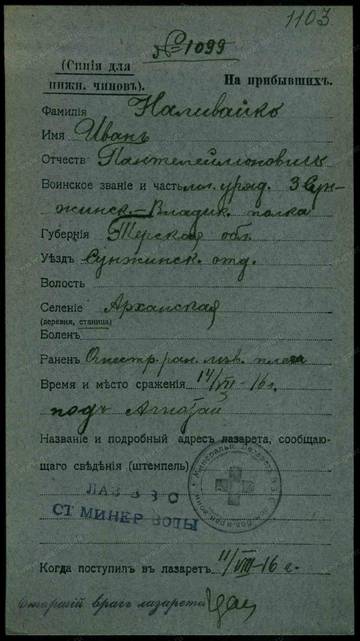 1103
№ 1099
(Синiя для
нижн. чиновъ).
На прибывшихъ.
Фамилiя Наливайко
Имя Иванъ
Отчеств Пантелеймоновичъ
Воинское званiе и часть мл. уряд. 3 Сун-
жинск.-Владик. полка
Губернiя Терская обл.
Уѣздъ Сунжинск. отд.
Волость
Селенiе Арханская
(деревня, станица)
Боленъ
Раненъ Огнестр. ран. лѣв. плеча
Время и мѣсто сраженiя 14/VII-16 г.
подъ
Названiе и подробный адресъ лазарета, сообщаю-
щаго свѣдѣнiя (штемпель)
ЛАЗ ВЗС
СТ МИНЕР ВОДЫ
Когда поступил въ лазаретъ 11/VIII-16 г.
Старшiй врачъ лазарета